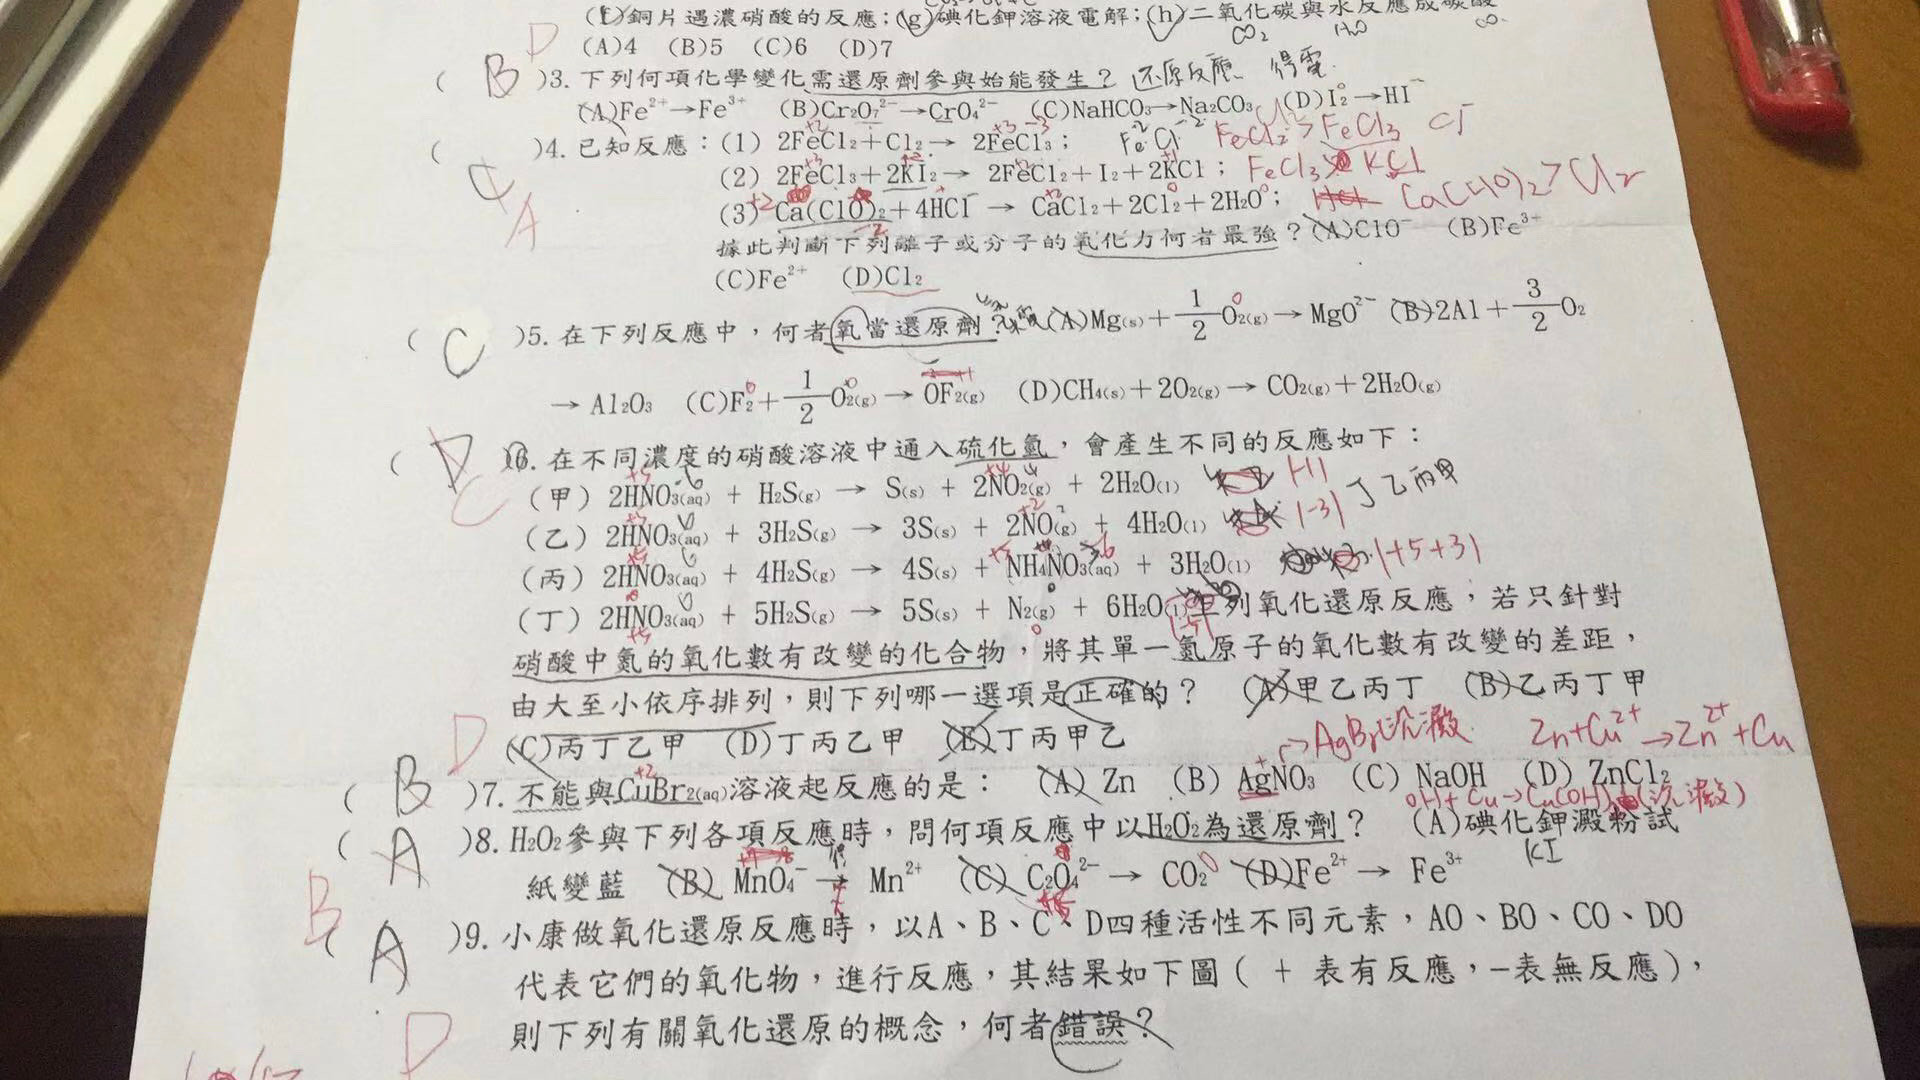 (f)銅片遇濃硝酸的反應;(g)碘化鉀溶液電解;(h)二氧化碳與水反應成碳酸
CO₂ H₂O
D (A)4 (B)5 (C)6 (D)7
( B )3. 下列何項化學變化需還原劑參與始能發生? 还原反應 得電
(A)Fe²⁺→Fe³⁺ (B)Cr₂O₇²⁻→CrO₄²⁻ (C)NaHCO₃→Na₂CO₃ (D)I₂→HI
( )4. 已知反應:(1) 2FeCl₂+Cl₂→ 2FeCl₃; FeCl₂>FeCl₃
(2) 2FeCl₃+2KI₂→ 2FeCl₂+I₂+2KCl; FeCl₃ KCl
(3) Ca(ClO)₂+4HCl → CaCl₂+2Cl₂+2H₂O; Ca(ClO)₂>Cl₂
A
據此判斷下列離子或分子的氧化力何者最強?(A)ClO⁻ (B)Fe³⁺
(C)Fe²⁺ (D)Cl₂
( C )5. 在下列反應中,何者氧當還原劑? (A)Mg(s)+1/2O₂(g)→MgO²⁻ (B)2Al+3/2O₂
→Al₂O₃ (C)F₂+1/2O₂(g)→OF₂(g) (D)CH₄(s)+2O₂(g)→CO₂(g)+2H₂O(g)
( D )6. 在不同濃度的硝酸溶液中通入硫化氫,會產生不同的反應如下:
C (甲) 2HNO₃(aq) + H₂S(g) → S(s) + 2NO₂(g) + 2H₂O(l) |-1| 丁乙丙甲
(乙) 2HNO₃(aq) + 3H₂S(g) → 3S(s) + 2NO(g) + 4H₂O(l) |-3|
(丙) 2HNO₃(aq) + 4H₂S(g) → 4S(s) + NH₄NO₃(aq) + 3H₂O(l) |+5+3|
(丁) 2HNO₃(aq) + 5H₂S(g) → 5S(s) + N₂(g) + 6H₂O(l) 列氧化還原反應,若只針對
|-5|
硝酸中氮的氧化數有改變的化合物,將其單一氮原子的氧化數有改變的差距,
由大至小依序排列,則下列哪一選項是正確的? (A)甲乙丙丁 (B)乙丙丁甲
(C)丙丁乙甲 (D)丁丙乙甲 (E)丁丙甲乙 AgBr沉澱 Zn+Cu²⁺→Zn²⁺+Cu
D
( B )7. 不能與CuBr₂(aq)溶液起反應的是: (A) Zn (B) AgNO₃ (C) NaOH (D) ZnCl₂
OH+Cu→Cu(OH) (沉澱)
( A )8. H₂O₂參與下列各項反應時,問何項反應中以H₂O₂為還原劑? (A)碘化鉀澱粉試
KI
紙變藍 (B) MnO₄⁻→ Mn²⁺ (C) C₂O₄²⁻→ CO₂ (D)Fe²⁺ → Fe³⁺
B
( A )9. 小康做氧化還原反應時,以A、B、C、D四種活性不同元素,AO、BO、CO、DO
代表它們的氧化物,進行反應,其結果如下圖( + 表有反應,−表無反應),
則下列有關氧化還原的概念,何者錯誤?
D